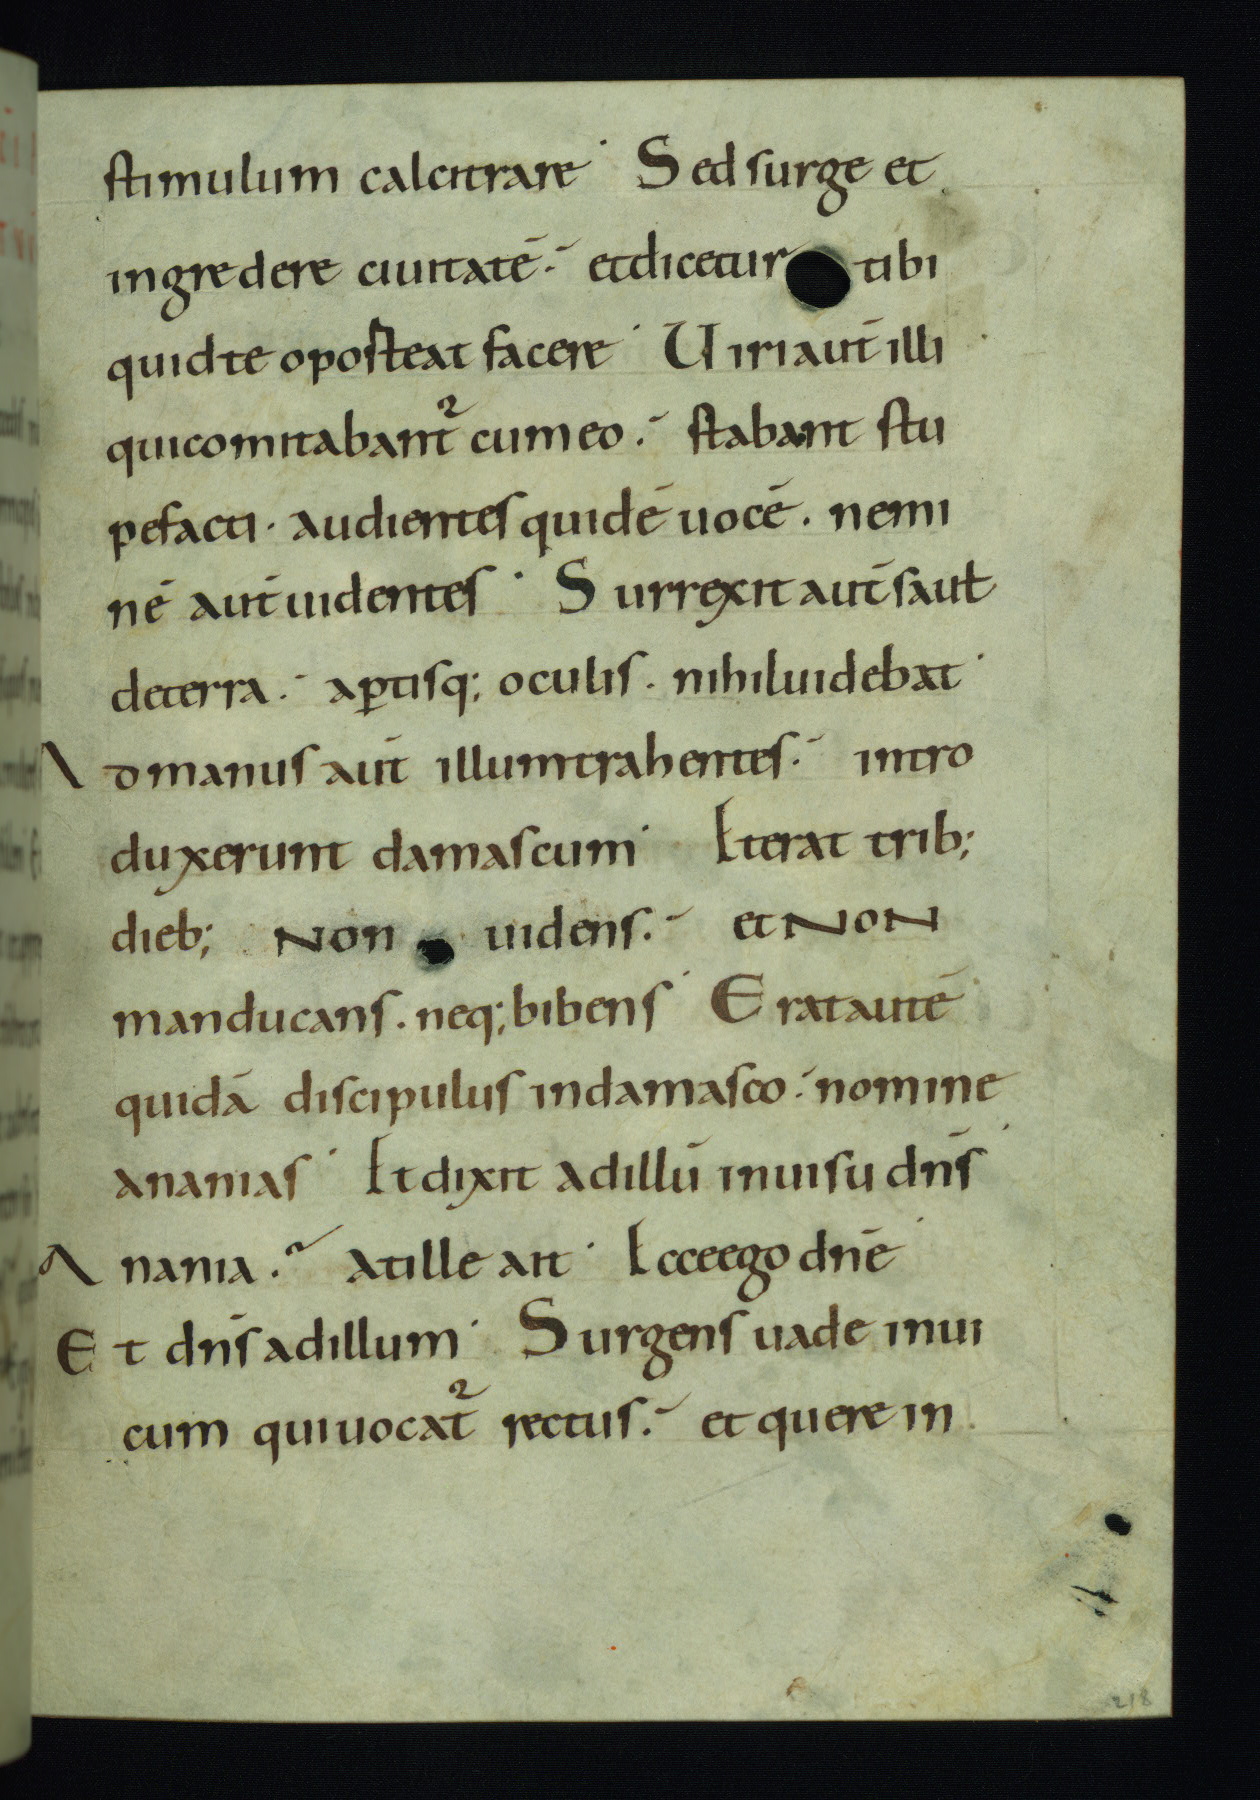 stimulum calcitrare Sed surge et
ingredere ciuitatē. et dicetur tibi
quid te oposteat facere Uiri aut̄ illi
qui comitabant᷑ cum eo. stabant stu
pefacti. audientes quidē uocē. nemi
nē aut̄ uidentes Surrexit aut̄ saul
de terra. aꝑtisq; oculis. nihil uidebat
Ad manus aut̄ illum trahentes. intro
duxerunt damascum Et erat trib;
dieb; Non uidens. et NoN
manducans. neq; bibens Erat autē
quidā discipulus in damasco. nomine
ananias Et dixit ad illū in uisu dn̄s
Anania. At ille ait Ecce ego dn̄e
Et dn̄s ad illum Surgens uade in ui
cum qui uocat᷑ rectus. et quere in
218